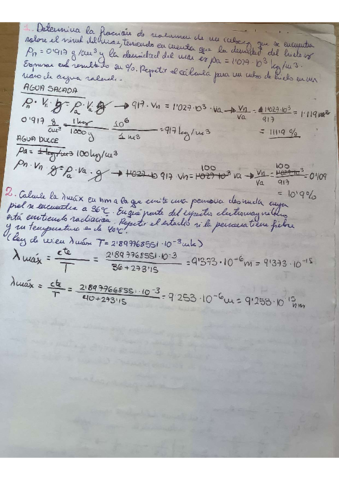 1. Determina la fracción de volumen de un cubo que se encuentra
sobre el nivel del mar, teniendo en cuenta que la densidad del hielo es
ρn = 0'917 g/cm³ y la densidad del mar es ρa = 1'027·10³ kg/m³.
Exprese el resultado en %. Repite el cálculo para un cubo de hielo en un
vaso de agua
AGUA SALADA
ρ · Vn · g = ρa · Va · g → 917 · Vn = 1'027·10³ · Va → Vn/Va = 1'027·10³/917 = 1'119
0'917 g/cm³ · 1kg/1000g · 10⁶/1m³ = 917 kg/m³
= 111'9 %
AGUA DULCE
ρa = 100 kg/m³
ρn · Vn · g = ρa · Va · g → 917 Vn = 100 Va → Vn/Va = 100/917 = 0'109
= 10'9%
2. Calcule la λmáx en nm a la que emite una persona desnuda cuya
piel se encuentra a 36ºC. En qué parte del espectro electromagnético
está emitiendo radiación. Repetir el estudio si la persona tiene fiebre
y su temperatura es de 40ºC.
(Ley de Wien λmáx T = 2'897766551 · 10⁻³ mk)
λ máx = cte/T = 2'897766551 · 10⁻³/36+273'15 = 9'373 · 10⁻⁶ m = 9'373 · 10⁻¹⁵
λ máx = cte/T = 2'897766551 · 10⁻³/40+273'15 = 9'253 · 10⁻⁶ m = 9'253 · 10⁻¹⁵ nm